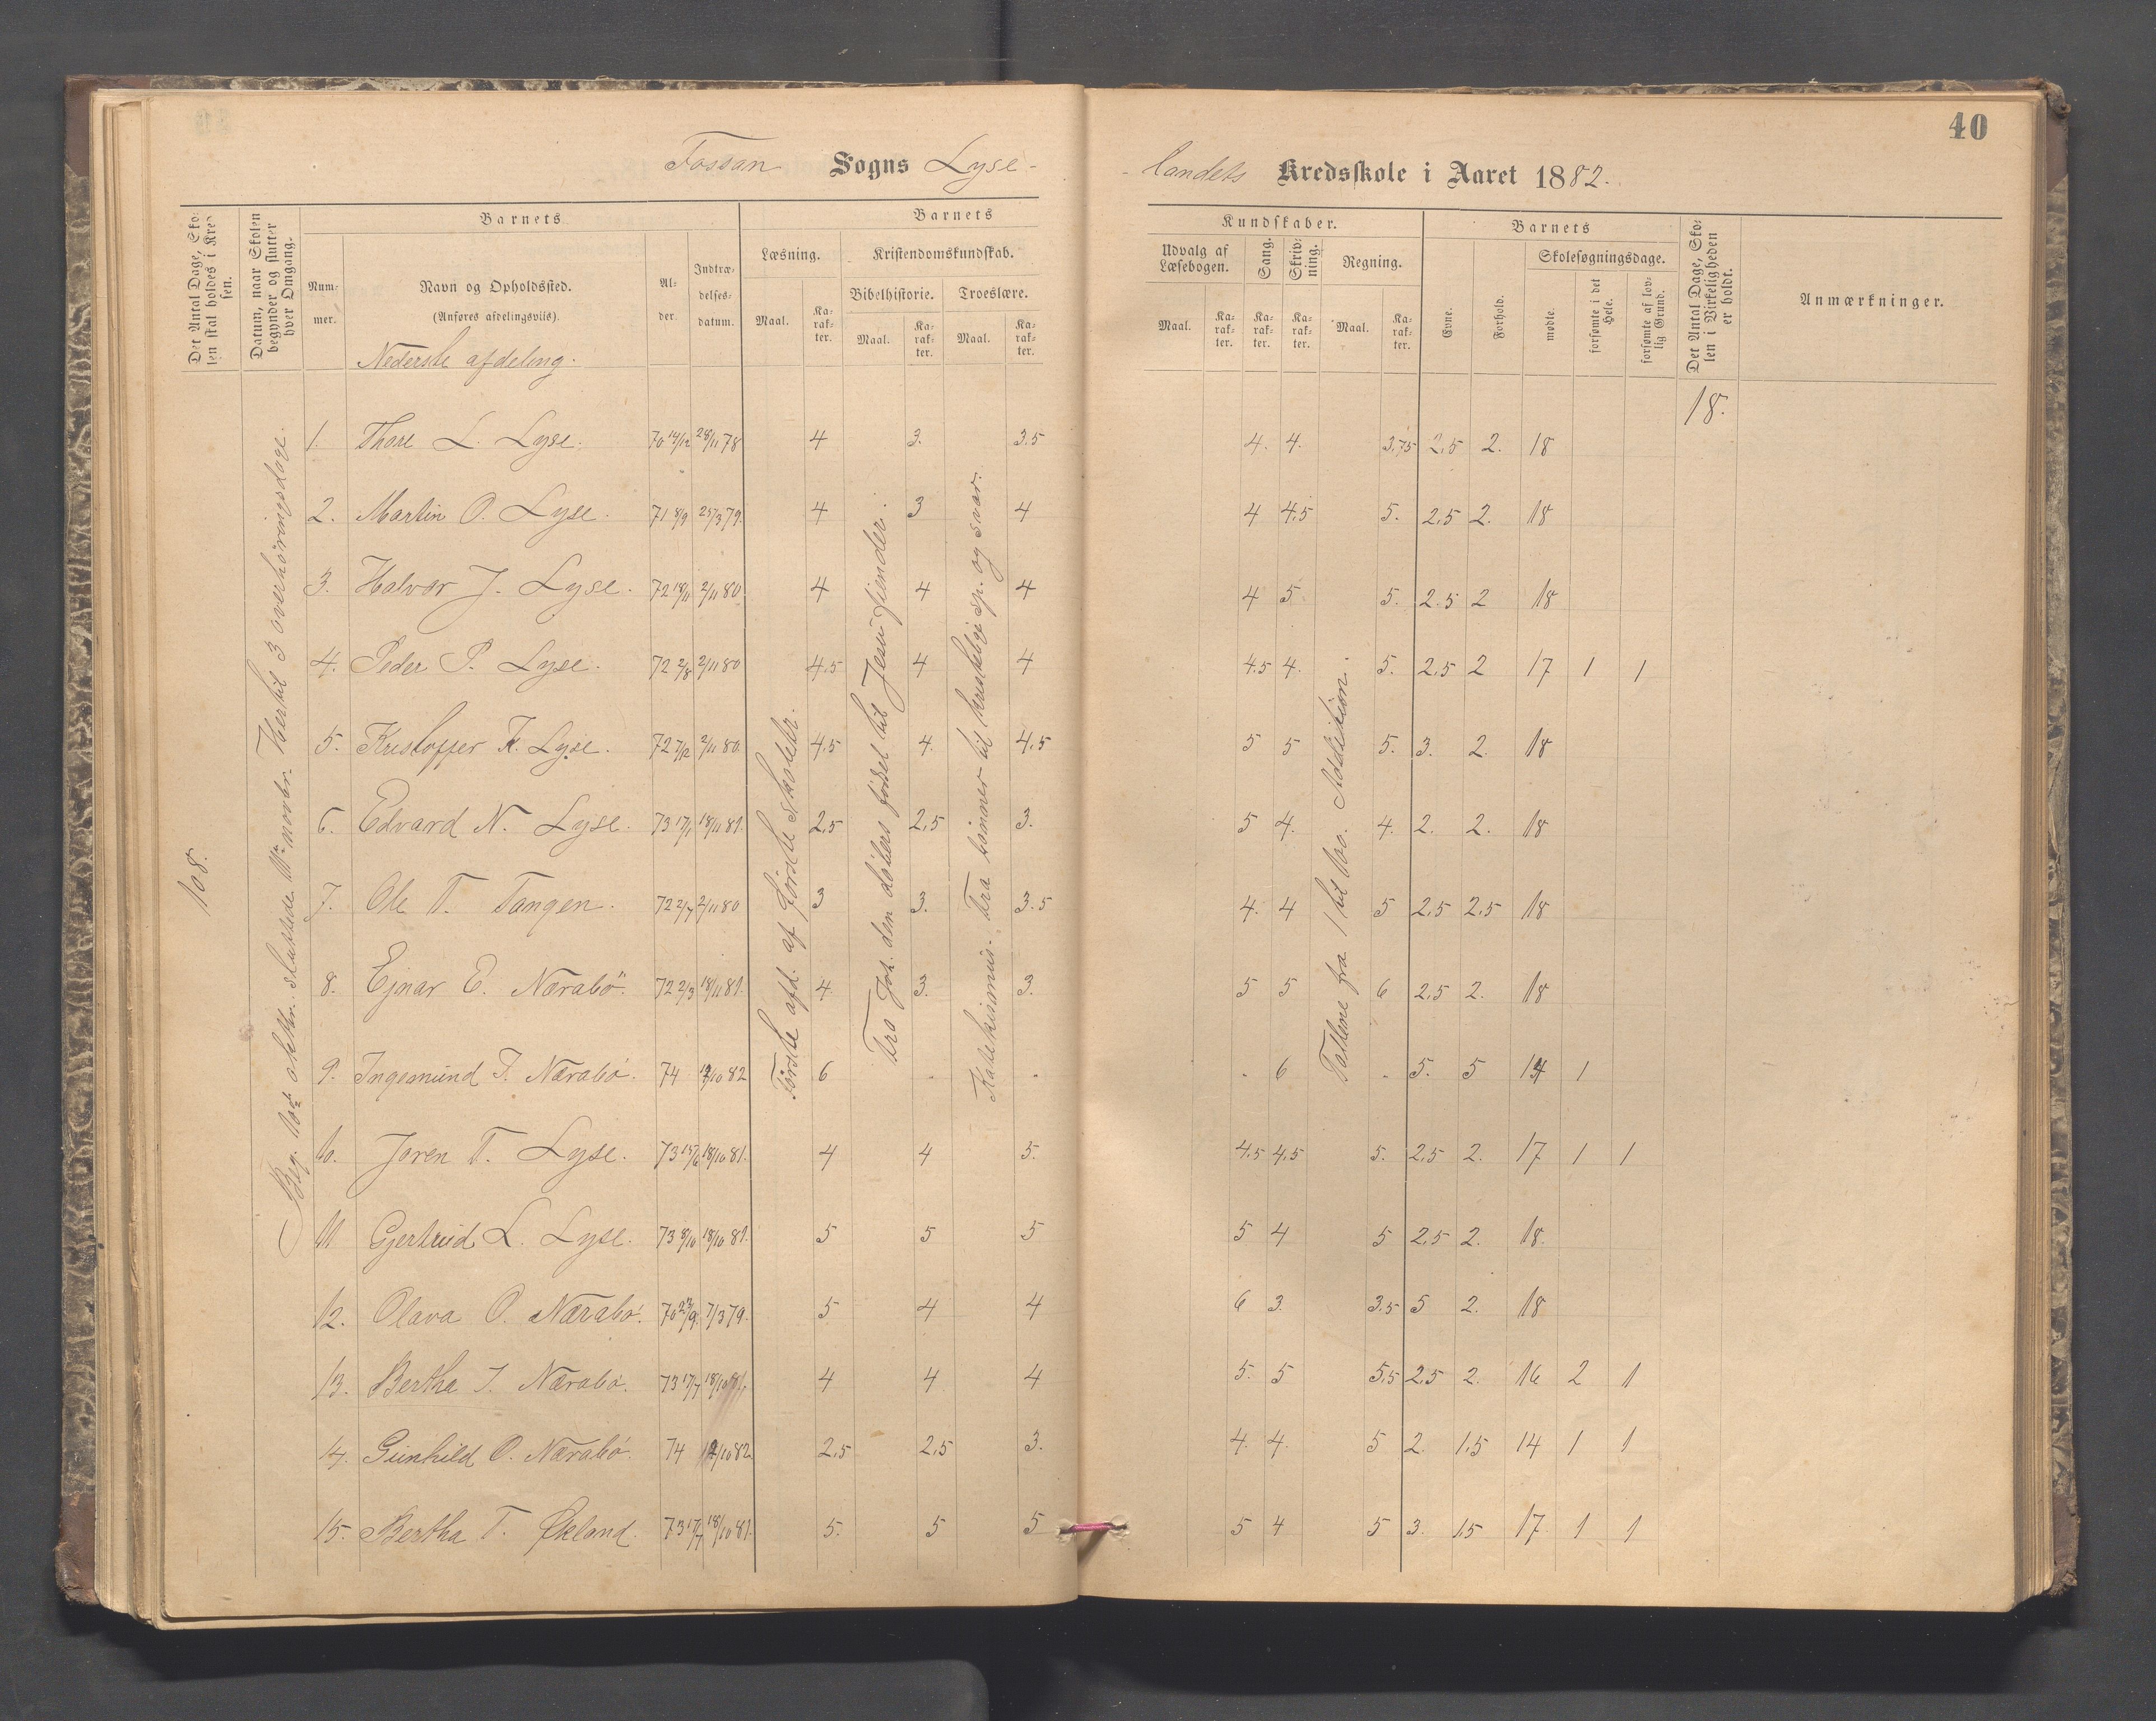 40
Fossan Sogns Lyse-
-landets Kredsskole i Aaret 1882.
Det Antal Dage, Skolen skal holdes i Kredsen.
Datum, naar Skolen begynder og slutter hver Omgang.
Barnets
Nummer.
Navn og Opholdssted.
(Anføres afdelingsviis).
Alder.
Indtrædelsesdatum.
Barnets
Læsning.
Maal.
Karakter.
Kristendomskundskab.
Bibelhistorie.
Maal.
Karakter.
Troeslære.
Maal.
Karakter.
Kundskaber.
Udvalg af Læsebogen.
Maal.
Karakter.
Sang.
Karakter.
Skrivning.
Karakter.
Regning.
Maal.
Karakter.
Barnets
Evne.
Forhold.
Skolesøgningsdage.
mødte.
forsømte i det Hele.
forsømte af lovlig Grund.
Det Antal Dage, Skolen i Virkeligheden er holdt.
Anmærkninger.
Nederste afdeling.
18.
108.
Beg. 16de oktbr. sluttede 11te novbr. Hertil 3 overhøringsdage.
Første afd. af første skoletr.
Fra Joh. den døbers fødsel til Jesu fiender.
Katekismus. Fra bønner til kristelige sp. og svar.
Tallene fra 1 til 100. Addition.
1. Thore L. Lyse. 70 14/12 28/11 78 4 3. 3.5 4. 4. 3,75 2,5 2. 18
2. Martin O. Lyse. 71 8/9 25/3 79. 4 3 4 4 4,5 5. 2,5 2. 18
3. Halvor J. Lyse. 72 18/11 2/11 80 4 4 4 4 5 5. 2.5 2 18
4. Peder P. Lyse. 72 2/8 2/11 80 4.5 4 4 4.5 4. 5. 2,5 2 17 1 1
5. Kristoffer K. Lyse. 72 7/12 2/11 80. 4.5 4. 4,5 5 5 5. 3. 2. 18
6. Edvard N. Lyse. 73 17/1 18/11 81. 2,5 2,5 3. 5 4. 4. 2. 2. 18
7. Ole T. Tangen. 72 2/7 2/11 80 3 3. 3.5 4. 4 5 2,5 2,5 18
8. Ejnar E. Nærabø. 72 2/3 18/11 81. 4. 3. 3. 5 5 6 2,5 2. 18
9. Ingemund T. Nærabø. 74 /10 82 6 . . . 6 . 5. 5 14 1
10. Joren T. Lyse. 73 15/6 18/10 81. 4 4 5. 4,5 4,5 5. 2,5 2. 17 1 1
11 Gjertrud L. Lyse. 73 8/10 18/10 81. 5 5 5 5 4 5 2,5 2. 18.
12. Olava O. Nærabø. 70 23/9. 7/3 79. 5 4 4 6 3. 3.5 5 2. 18
13. Bertha I. Nærabø. 73 17/7 18/10 81. 4 4 4 5. 5 5,5 2,5 2. 16 2 1
14. Gunhild O. Nærabø. 74 /10 82 2,5 2,5 3. 4. 4. 5 2. 1,5 14 1 1
15. Bertha T. Økland. 73 17/7 18/10 81. 5. 5 5 5 4 5 3. 1.5 17. 1 1